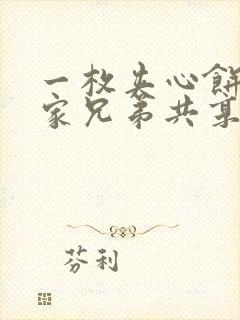 一枚夹心餅
家兄弟共某
芬利